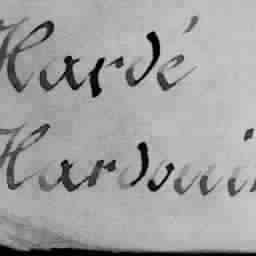 Hardé
Hardouin